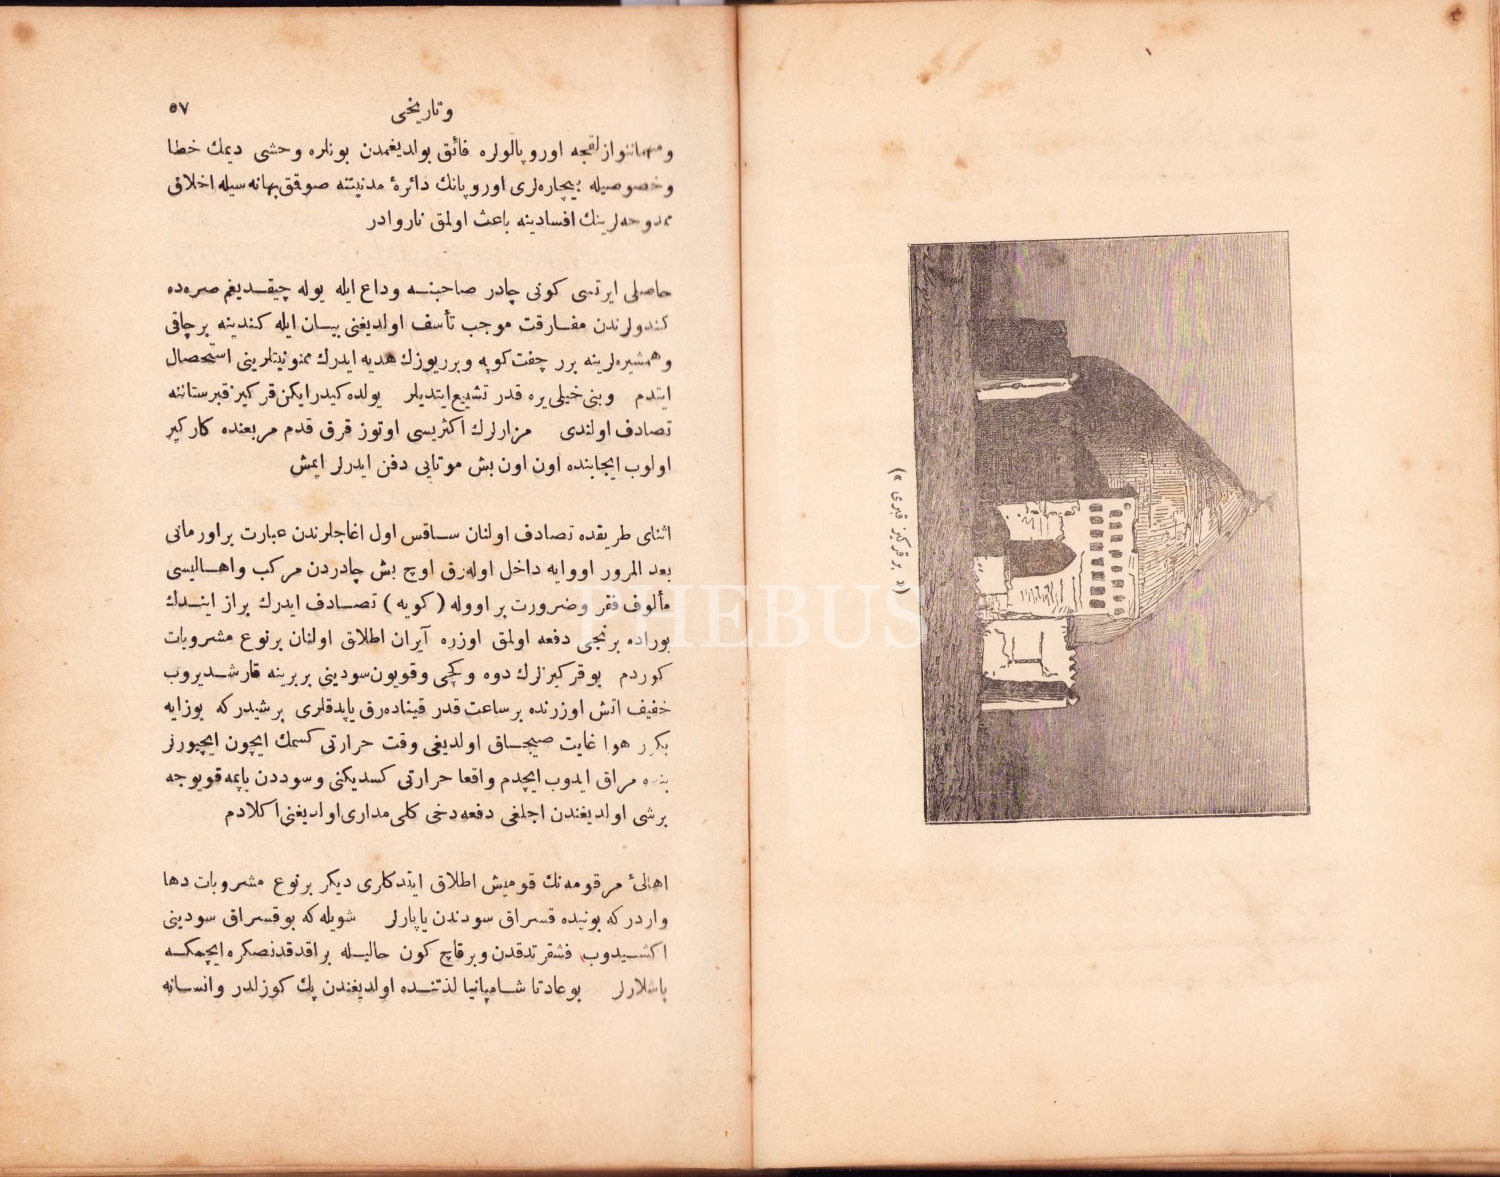 وتاریخی ٥٧
ومهماننوازلقجه اوروپالولره فائق بولدیغمدن بونلره وحشی دیمك خطا
وخصوصیله بیچاره‌لری اوروپانك دائرهٔ مدنیتنه صوقق بهانه سیله اخلاق
ممدوحه‌لرینك افسادینه باعث اولمق ناروادر
حاصلی ایرتسی کونی چادر صاحبنه وداع ایله یوله چیقدیغم صره‌ده
کندولرندن مفارقت موجب تأسف اولدیغنی بیان ایله کندینه برچاقی
وهمشیره‌لرینه برر چفت کوپه وبرریوزك هدیه ایدرك ممنونیتلرینی استحصال
ایتدم وبنی خیلی یره قدر تشییع ایتدیلر یولده کیدرایکن قرکیز قبرستاننه
تصادف اولندی مزارلرك اکثریسی اوتوز قرق قدم مربعنده کارکیر
اولوب ایجابنده اون اون بش موتایی دفن ایدرلر ایمش
اثنای طریقده تصادف اولنان ساقس اول اغاجلرندن عبارت براورمانی
بعد المرور اووایه داخل اوله‌رق اوچ بش چادردن مرکب واهالیسی
مألوف فقر وضرورت بر اووله (کویه) تصادف ایدرك براز ایندك
بوراده برنجی دفعه اولمق اوزره آیران اطلاق اولنان برنوع مشروبات
کوردم بوقرکیزلرك دوه وکچی وقویون سودینی بربرینه قارشدیروب
خفیف اتش اوزرنده برساعت قدر قیناده‌رق یاپدقلری برشیدرکه بوزایه
بکزر هوا غایت صیجاق اولدیغی وقت حرارتی کسمك ایچون ایچیورلر
بنده مراق ایدوب ایچدم واقعا حرارتی کسدیکنی وسوددن یاپمه قویوجه
برشی اولدیغندن اجلغی دفعه دخی کلی مداری اولدیغنی اکلادم
اهالیٔ مرقومه‌نك قومیش اطلاق ایتدکاری دیکر برنوع مشروبات دها
واردرکه بونیده قسراق سودندن یاپارلر شویله‌که بوقسراق سودینی
اکشیدوب فشقرتدقدن وبرقاچ کون حالیله براقدقدنصکره ایچمکه
باشلارلر بوعادتا شامپانیا لذتنده اولدیغندن پك کوزلدر وانسانه
(بر قرکیز قبری)
PHEBUS